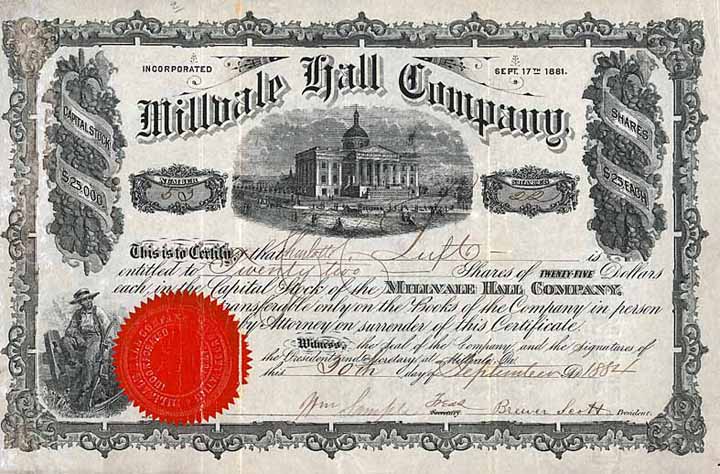 INCORPORATED
SEPT. 17TH 1881.
Millvale Hall Company.
CAPITAL STOCK
$25,000
SHARES
$25 EACH
NUMBER
SHARES
22
This is to Certify, that Charlotte Luft is
entitled to Twenty two Shares of TWENTY-FIVE Dollars
each in the Capital Stock of the MILLVALE HALL COMPANY,
transferable only on the Books of the Company in person
or by Attorney on surrender of this Certificate.
Witness, the Seal of the Company, and the Signatures of
the President and Secretary at Millvale, Pa.
this 20th day of September AD 1884
Wm Sample Treas Secretary. Brewer Scott President.